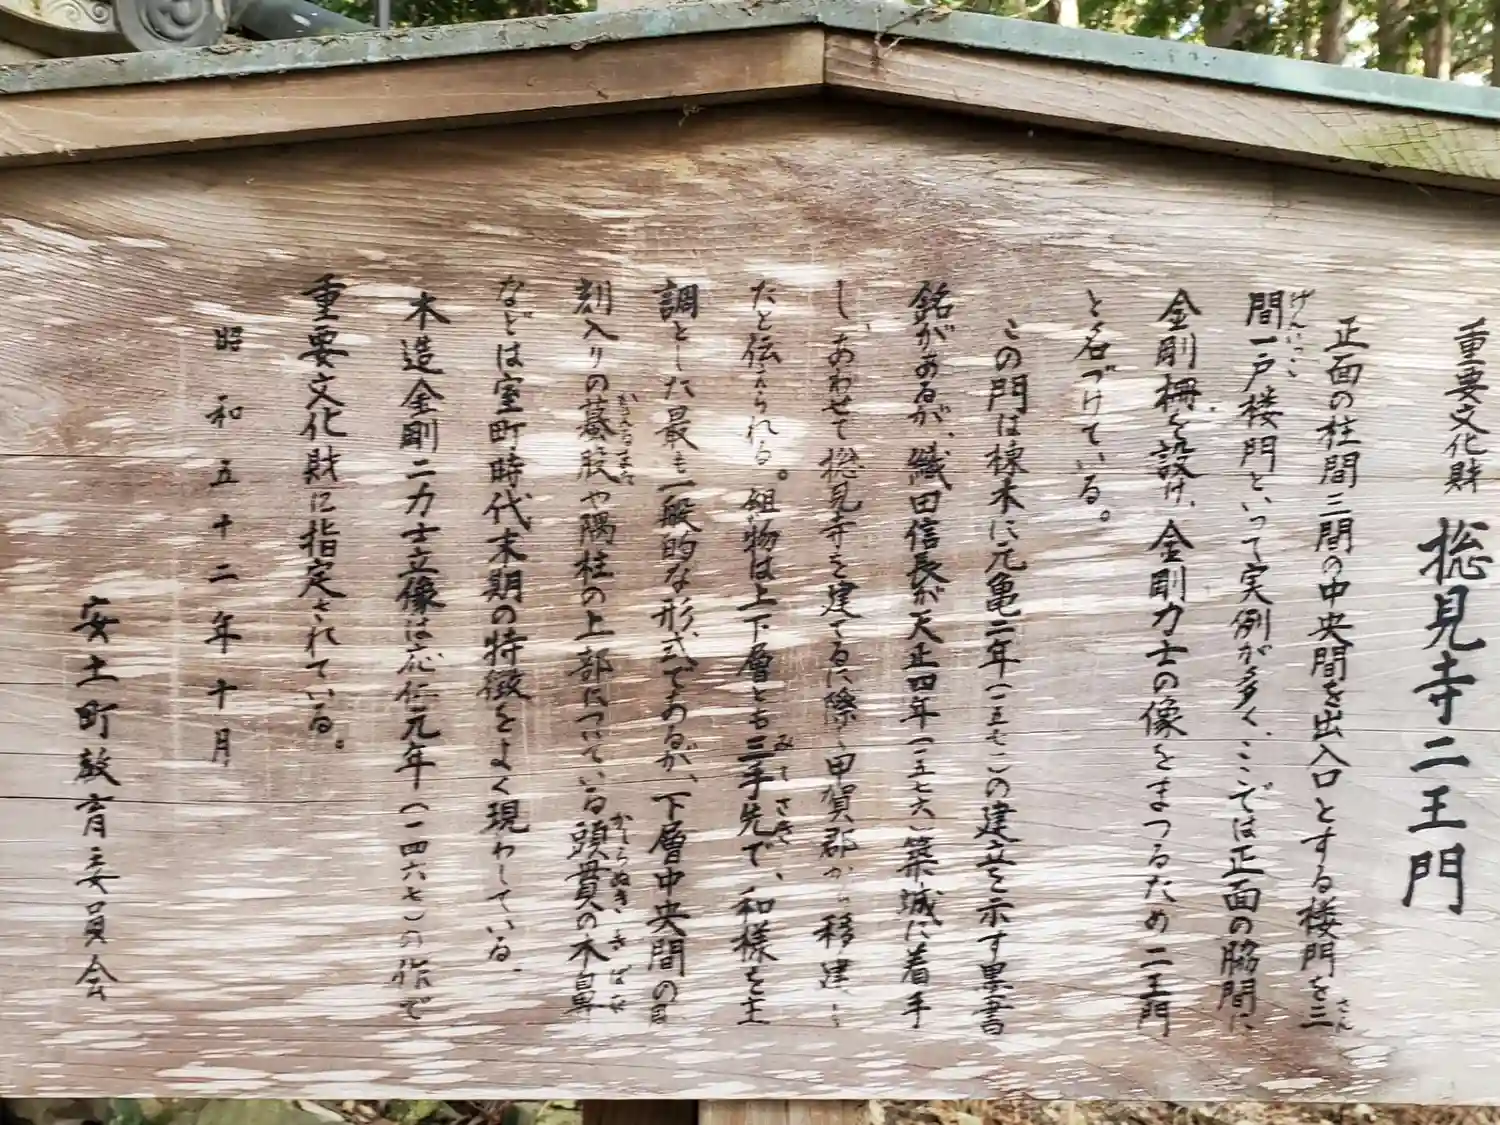 重要文化財 摠見寺二王門
正面の柱間三間の中央間を出入口とする楼門を三
さん
間一戸楼門といって実例が多く、ここでは正面の脇間に
げんいっこ
金剛柵を設け、金剛力士の像をまつるため二王門
と名づけている。
この門は棟木に元亀二年(一五七一)の建立を示す墨書
銘があるが、織田信長が天正四年(一五七六)築城に着手
し、あわせて摠見寺を建てるに際し甲賀郡から移建し
たと伝えられる。組物は上下層とも三手先で、和様を主
みてさき
調とした最も一般的な形式であるが、下層中央間の目
刻入りの蟇股や隅柱の上部についている頭貫の木鼻
かえるまた かしらぬき きばな
などは室町時代末期の特徴をよく現わしている。
木造金剛二力士立像は応仁元年(一四六七)の作で
重要文化財に指定されている。
昭和五十二年十月
安土町教育委員会